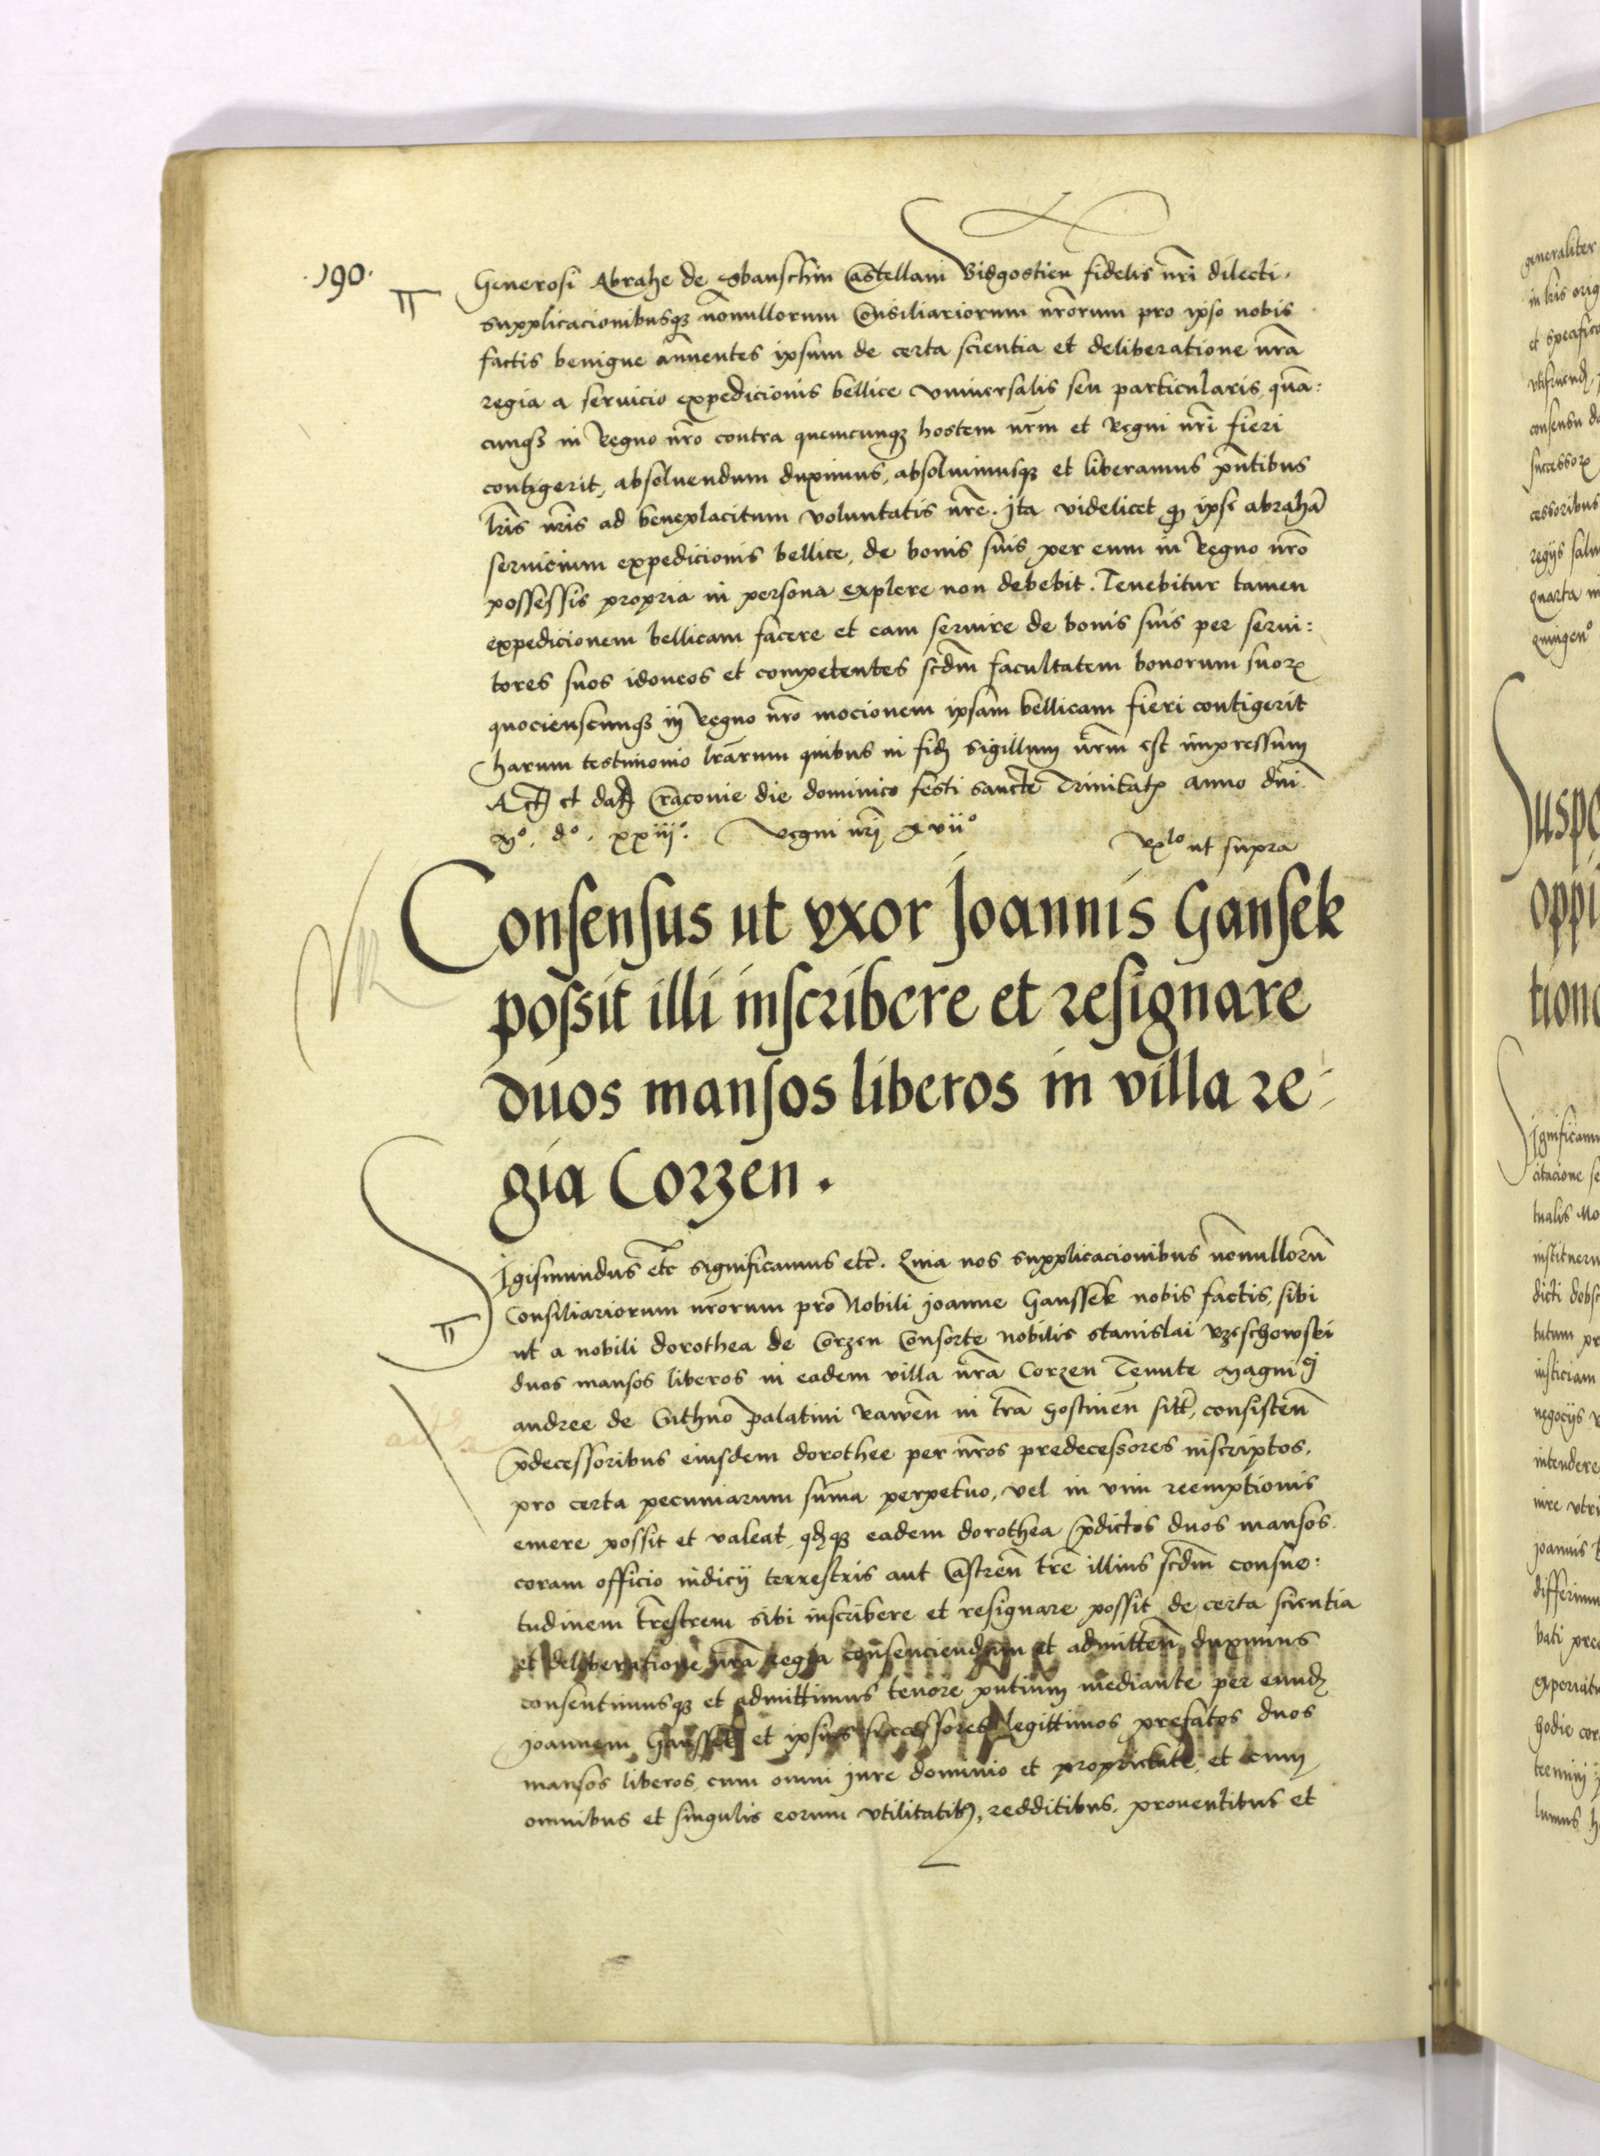 .190.
Generosi Abrahe de Sbanschin Castellani Bidgostien fidelis nr̄i dilecti.
supplicacionibusqꝫ nōnullorum Consiliariorum nr̄orum pro ipso nobis
factis benigne annuentes ipsum de certa scientia et deliberatione nr̄a
regia a seruicio expedicionis bellice vniuersalis seu particularis, quā:
cunqꝫ in Regno nr̄o contra quemcunqꝫ hostem nr̄m et Regni nr̄i fieri
contigerit, absoluendum duximus, absoluimusqꝫ et liberamus pn̄tibus
lr̄is nr̄is ad beneplacitum voluntatis nr̄e. Ita videlicet qp̄ ipse abrahā
seruicium expedicionis bellice, de bonis suis per eum in Regno nr̄o
possessis propria in persona explere non debebit. Tenebitur tamen
expedicionem bellicam facere et eam seruire de bonis suis per serui:
tores suos idoneos et competentes scd̄m facultatem bonorum suorꝝ
quocienscunqꝫ in Regno nr̄o mocionem ipsam bellicam fieri contigerit
harum testimonio lr̄arum quibus in fidē sigillum nr̄m est impressum
Act̄ et dat̄ Cracouie die dominico festi sancte Trinitatꝭ anno dn̄i
Mº. dº. xxiijº. Regni nr̄i xviiº
Rᵉˡᵒ ut supra
Consensus ut vxor Joannis Gansek
possit illi inscribere et resignare
duos mansos liberos in villa re:
gia Corzen.
Sigismundus etc̄ significamus etc̄. Quia nos supplicacionibus nōnullorū
Consiliariorum nr̄orum pro Nobili Joanne Ganssek nobis factis, sibi
ut a nobili dorothea de Corzen Consorte nobilis stanislai Rzeschowski
duos mansos liberos in eadem villa nr̄a Corzen Tenute Magnici
andree de Cuthno palatini Rawen̄ in tr̄a Gostinen̄ sitt̄, consisten̄
p̄decessoribus eiusdem dorothee per nr̄os predecessores inscriptos,
pro certa pecuniarum sūma perpetuo, vel in vim reemptionis
emere possit et valeat, qd̄qꝫ eadem dorothea p̄dictos duos mansos
coram officio iudicij terrestris aut Castren̄ tr̄e illius scd̄m consue:
tudinem tr̄estrem sibi inscribere et resignare possit, de certa scientia
et deliberatione nr̄a regia consenciendum et admitten̄ duximus
consentimusqꝫ et admittimus tenore pn̄tium mediante per eundē
Joannem Ganssek et ipsius successores legittimos prefatos duos
mansos liberos, cum omni iure dominio et proprietate, et cum
omnibus et singulis eorum vtilitatibꝫ, redditibus, prouentibus et